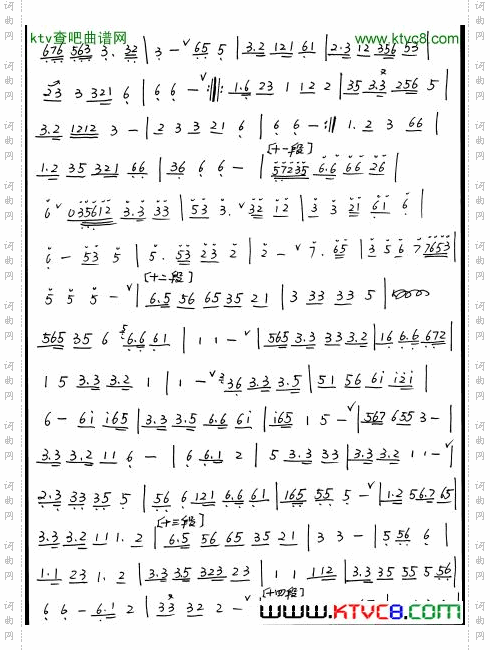 ktv查吧曲谱网 www.ktvc8.com
676 563 3. 32 | 3 - ˇ 65 5 | 3.2 121 61 | 2.3 12 356 53 |
23 3 321 6 | 6 6 - ˇ :||: 1.6 23 1 12 2 | 35 3.3 256 5
3.2 1212 3 - | 2 3 3 21 6 | 6 6 - :|| 1. 2 3 66 |
[十一段]
1.2 35 321 66 | 36 6 6 - | 57235 6.6 66 26 |
6 ˇ 035612 3.3 33 | 53 3. ˇ 32 12 | 3 3 21 61 6 |
6 - 53 5 | 5. 53 23 2 | 2 - ˇ 7. 65 | 3 5 6 7 7653 |
[十二段]
5 5 5 - ˇ | 6.5 56 65 35 21 | 3 33 33 5 |
565 35 6 5 6.6 61 | 1 1 - ˇ | 565 3.3 33 3.2 | 16 6.6 672 |
1 5 3.3 3.2 1 | 1 - ˇ 3 36 3.3 3.5 | 51 56 6i i2i |
6 - 6i i65 | 3.3 3.5 6.6 6i | i65 1 5 - ˇ | 567 655 3 - |
3.3 3.2 11 6 - | 6 6.1 2 | 5 3.3 33 | 3.3 3.2 1 1 - ˇ |
2.3 33 35 5 | 56 6 121 6.6 61 | 165 55 5 - ˇ | 1.2 56.7 65 |
[十三段]
3.3 3.2 11 1. 2 | 6.5 56 65 35 21 | 3 3 - | 5 56 6 |
1.1 23 1. 2 | 3.3 35 323 23 | 1 1 112 | 3.3 35 55 5 56 |
[十四段]
6 6 - 6.1 2 | 33 32 2 - ˇ
www.KTVC8.com
词曲网
词曲网
词曲网
词曲网
词曲网
词曲网
词曲网
词曲网
词曲网
词曲网
词曲网
词曲网
词曲网
词曲网